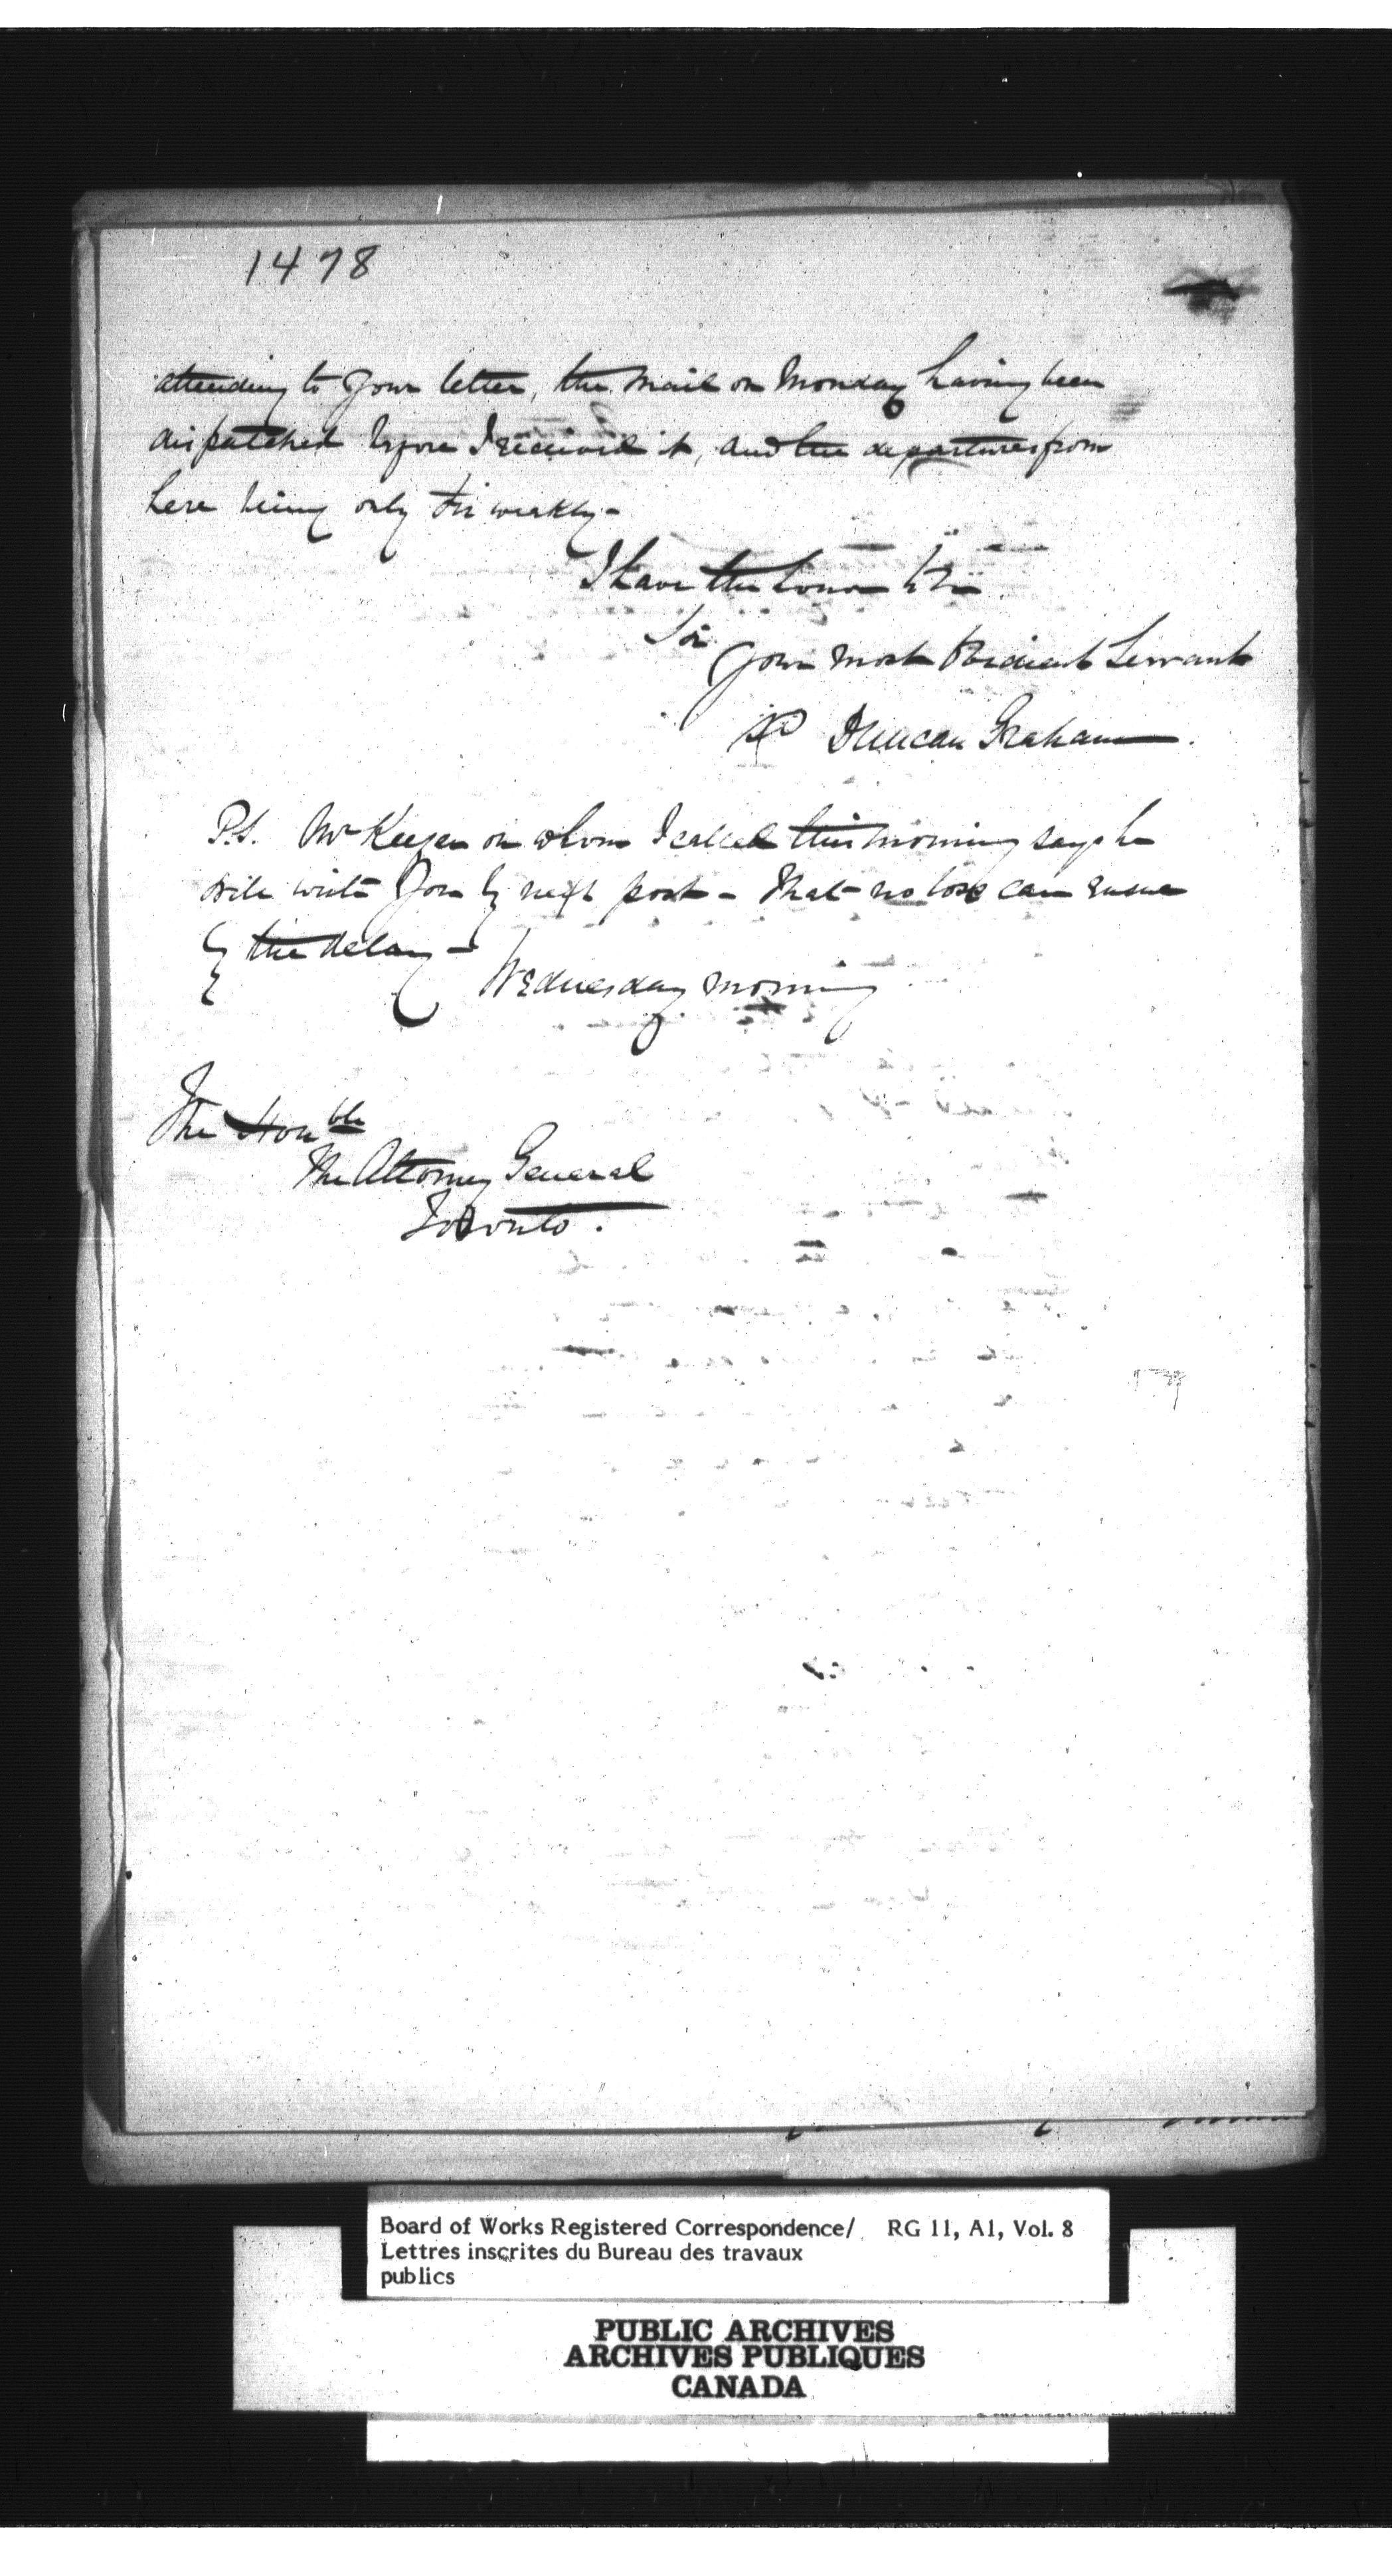 1478
attending to your letter, the mail on Monday having been
dispatched before I received it, and the departures from
here being only tri weekly -
I have the honor to be
Sir
Your most Obedient Servant
Duncan Graham.
P.S. Mr Keefer on whom I called this morning says he
will write you by next post - that no loss can ensue
by the delay -
Wednesday morning
The Honble
The Attorney General
Toronto.
Board of Works Registered Correspondence/ RG 11, A1, Vol. 8
Lettres inscrites du Bureau des travaux
publics
PUBLIC ARCHIVES
ARCHIVES PUBLIQUES
CANADA